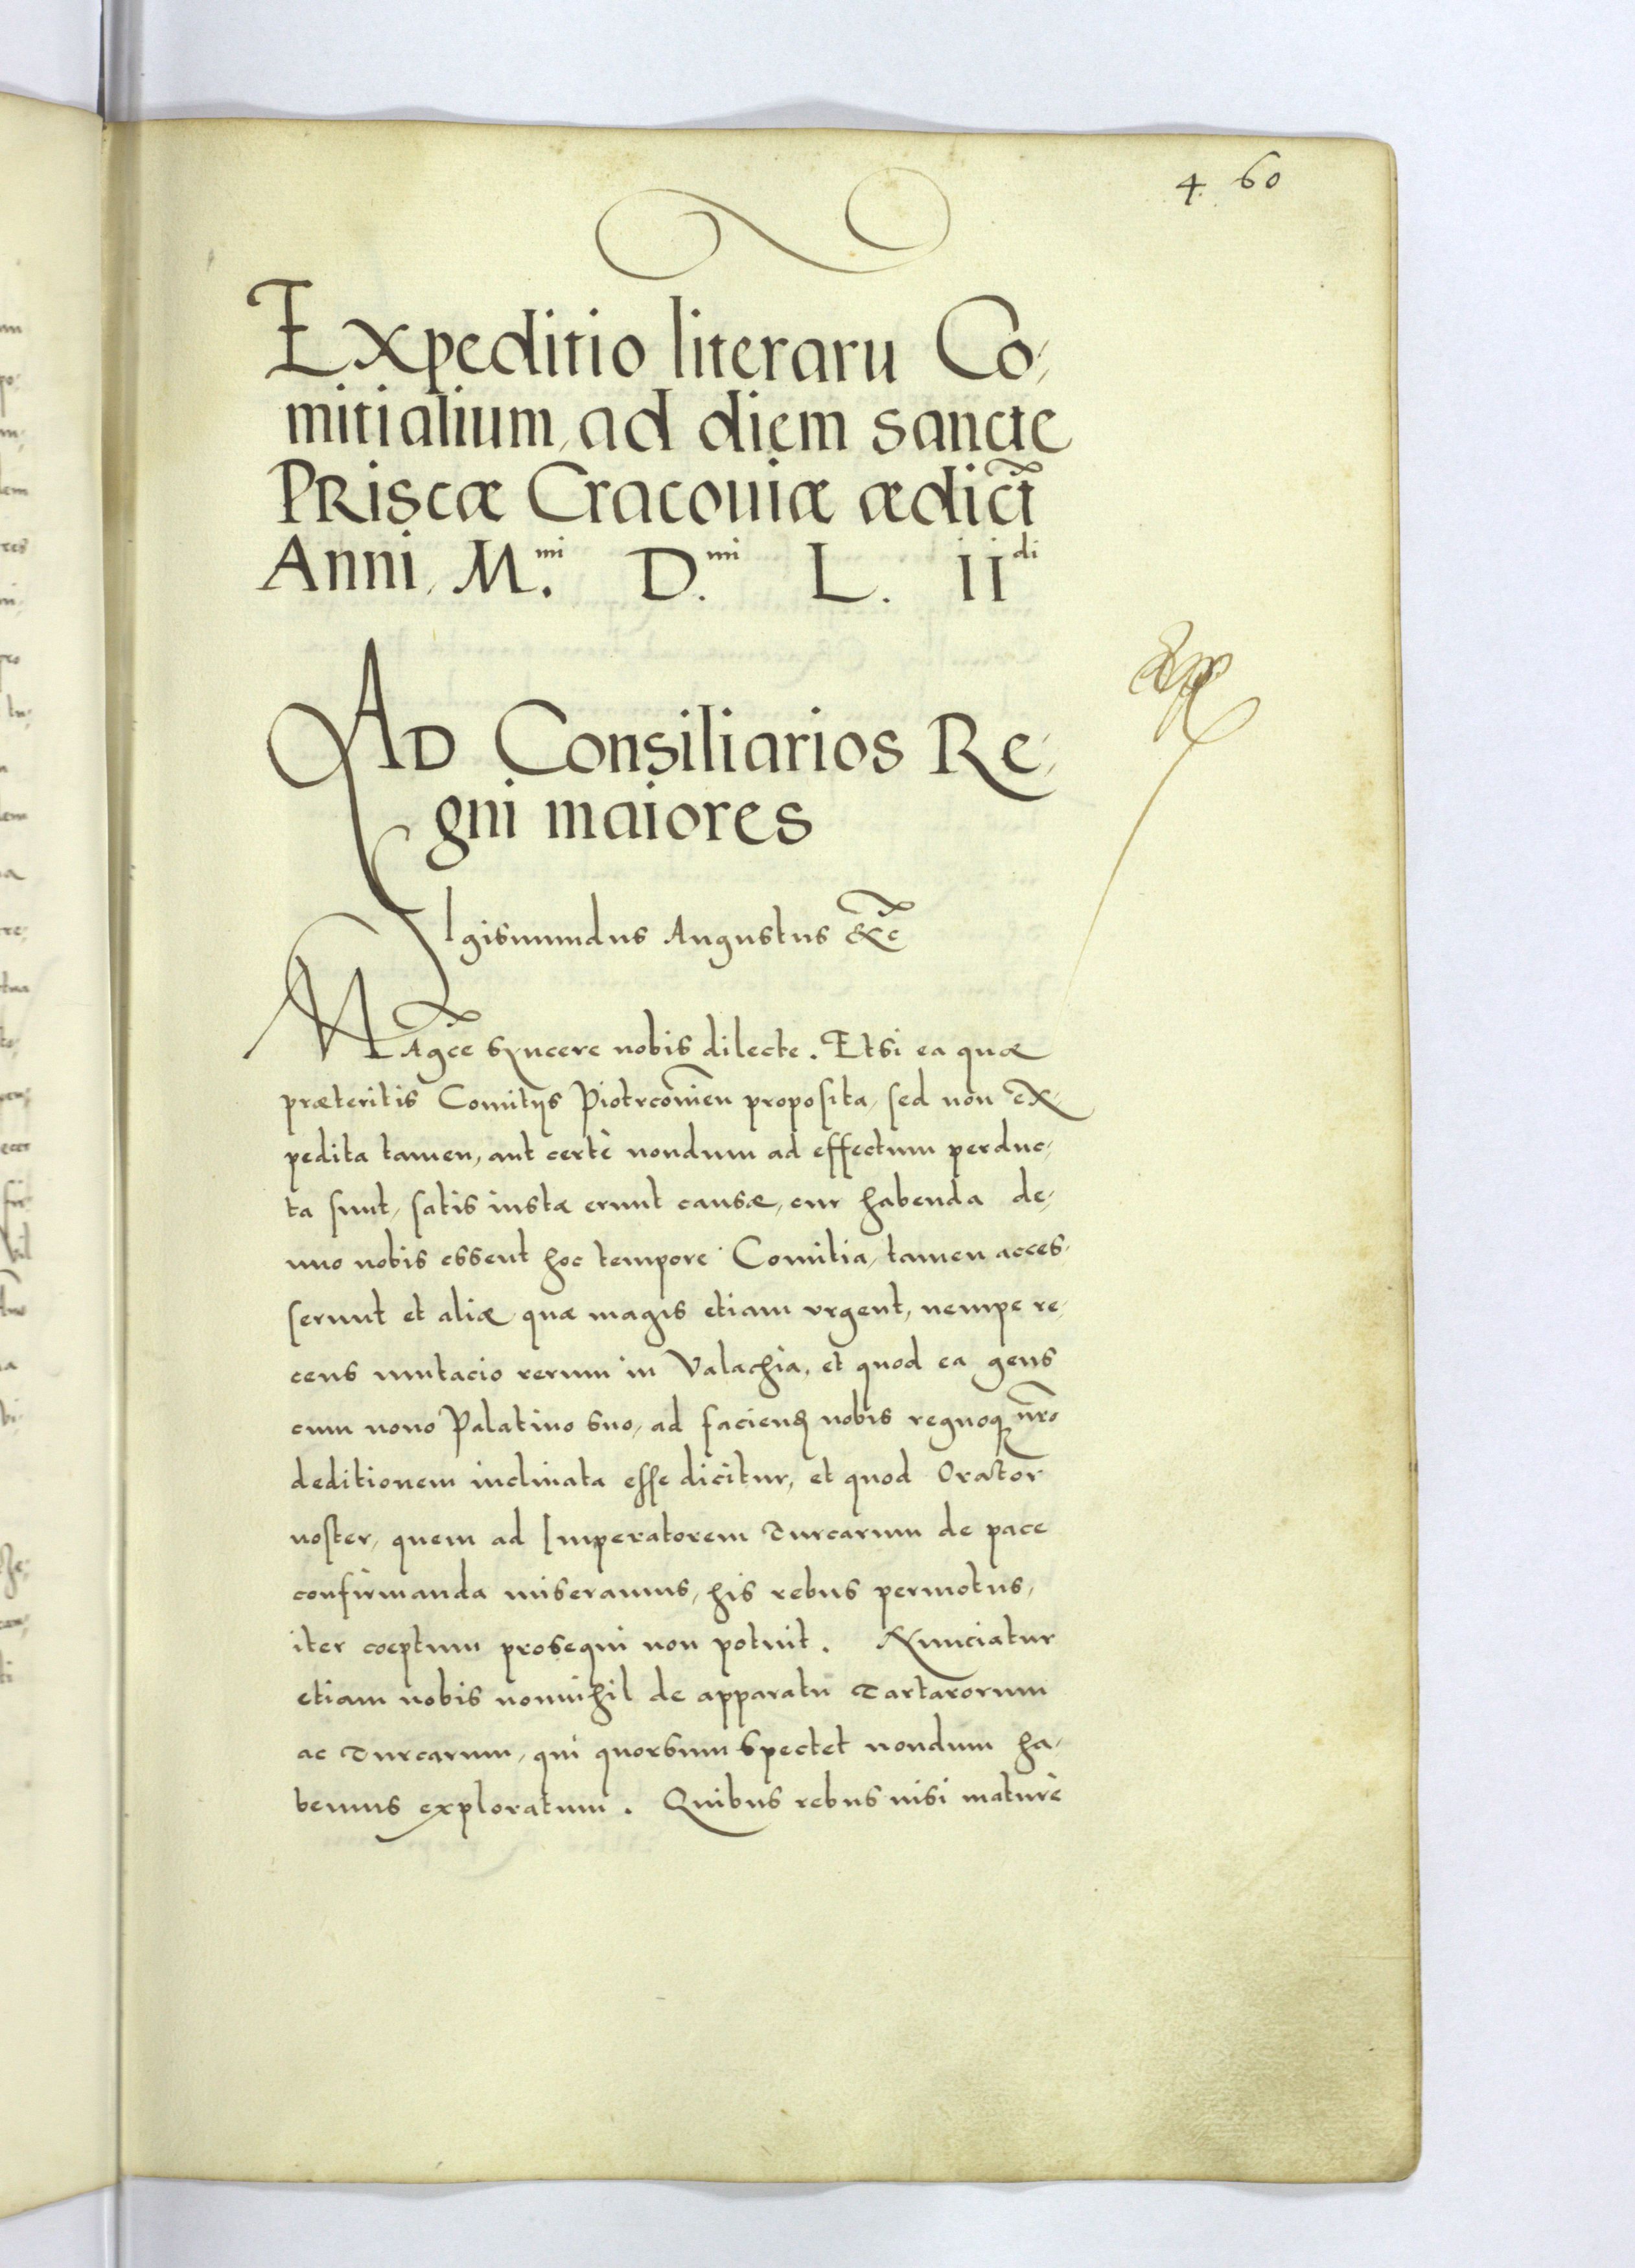 4. 60
Expeditio literaru Co,
mitialium, ad diem sancte
PRiscæ Cracouiæ ædict
Anni, M.mi D.mi L. IIdi
AD Consiliarios Re,
gni maiores
SIgismundus Augustus &c̃
MAgce syncere nobis dilecte. Etsi ea quæ
præteritis Comitijs Piotrconien̄ proposita, sed non ex,
pedita tamen, aut certè nondum ad effectum perduc,
ta sunt, satis iustæ erunt causæ, cur habenda de,
nuo nobis essent hoc tempore Comitia, tamen acces,
serunt et aliæ quæ magis etiam vrgent, nempe re,
cens mutacio rerum in Valachia, et quod ea gens
cum nouo Palatino suo, ad faciend nobis regnoq nr̃o
deditionem inclinata esse dicitur, et quod Orator
noster, quem ad Imperatorem Turcarum de pace
confirmanda miseramus, his rebus permotus,
iter coeptum prosequi non potuit. Nunciatur
etiam nobis nonnihil de apparatu Tartarorum
ac Turcarum, qui quorsum spectet nondum ha,
bemus exploratum. Quibus rebus nisi maturè